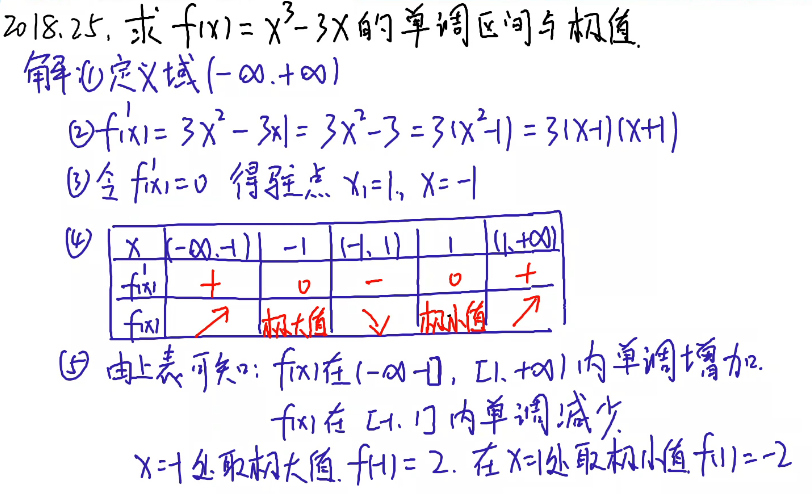 2018.25. 求 f(x)=x³-3x的单调区间与极值.
解:①定义域(-∞.+∞)
②f'(x)=3x²-3x1=3x²-3=3(x²-1)=3(x-1)(x+1)
③令f'(x)=0 得驻点 x₁=1, x=-1
④ x (-∞.-1) -1 (-1, 1) 1 (1.+∞)
f'(x) + 0 - 0 +
f(x) ↗ 极大值 ↘ 极小值 ↗
⑤ 由上表可知: f(x)在(-∞-1], [1.+∞)内单调增加.
f(x)在[-1. 1]内单调减少.
x=-1处取极大值.f(-1)=2. 在x=1处取极小值f(1)=-2